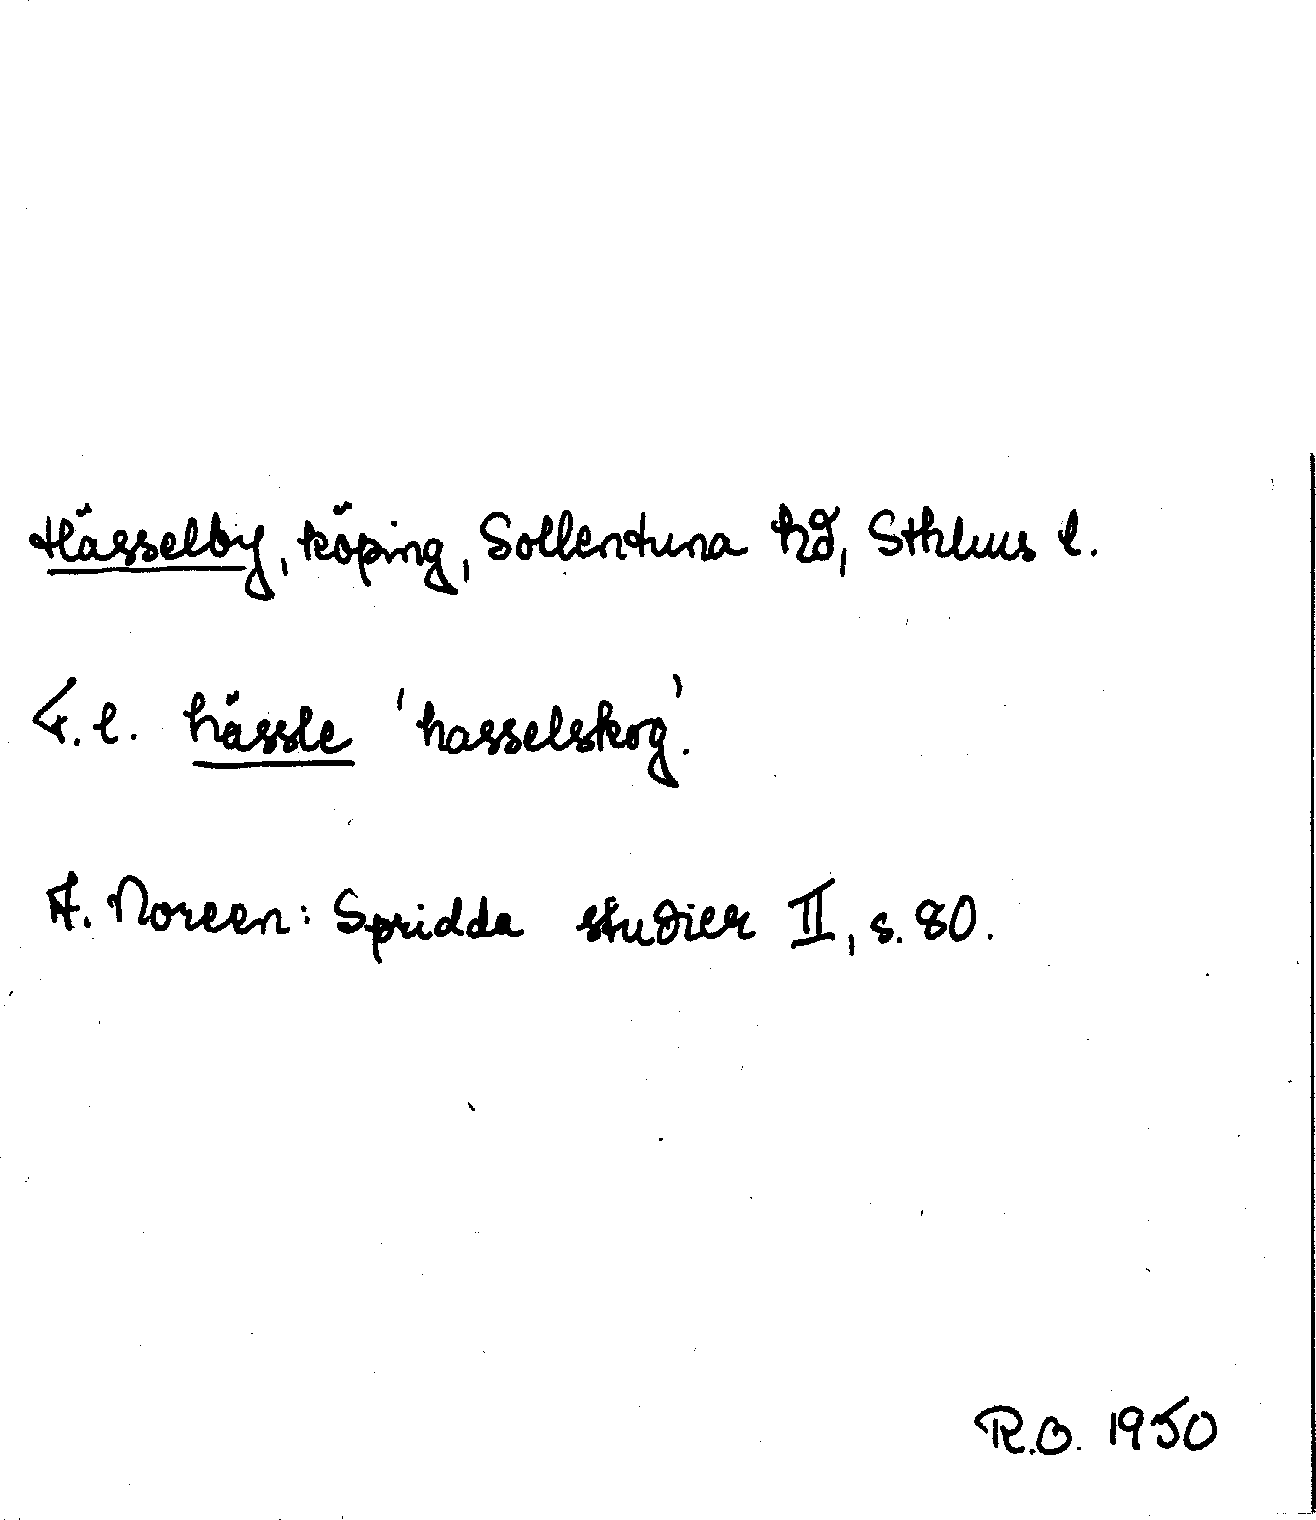 Hässelby, köping, Sollentuna hd, Sthlms l.
F. l. hässle 'hasselskog'.
A. Noreen: Spridda studier II, s. 80.
R.O. 1950